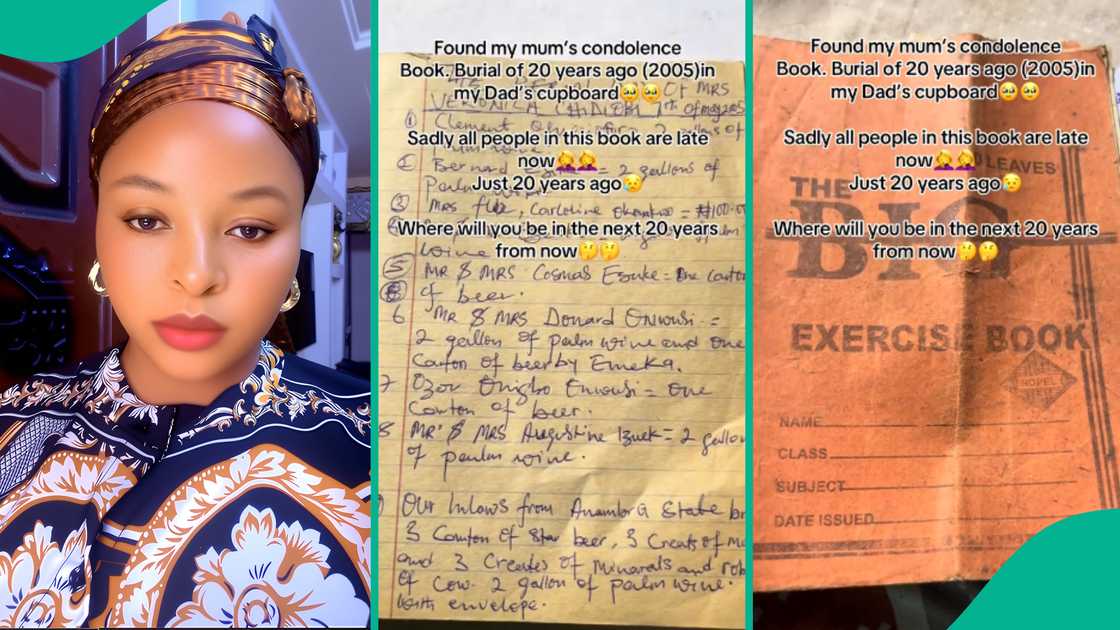 Found my mum's condolence
Book. Burial of 20 years ago (2005)in
my Dad's cupboard🥹🥹
Sadly all people in this book are late
now🤦‍♀️🤦‍♀️
Just 20 years ago😥
Where will you be in the next 20 years
from now🤔🤔
Of MRS
VERONICA
① Clement
= 2 gallons of
③ MRS
wine
⑤ MR & MRS Cosmas Ezuke = One Carton
⑥ of beer.
6 MR & MRS Donard Onwusi =
2 gallon of palm wine and one
Carton of beer by Emeka.
7 Ozor Onigbo Onwusi = One
Carton of beer.
8 MR & MRS Augustine Izuek = 2 gallon
of paulm wine.
Our Inlows from Anambra State br
3 Carton of Star beer, 3 Creats of
and 3 Creates of minarals and
of Cow. 2 gallon of paulm wine.
with envelope.
Found my mum's condolence
Book. Burial of 20 years ago (2005)in
my Dad's cupboard🥹🥹
Sadly all people in this book are late
now🤦‍♀️🤦‍♀️
Just 20 years ago😥
Where will you be in the next 20 years
from now🤔🤔
LEAVES
THE
BIG
EXERCISE BOOK
NOPEL
NAME
CLASS
SUBJECT
DATE ISSUED